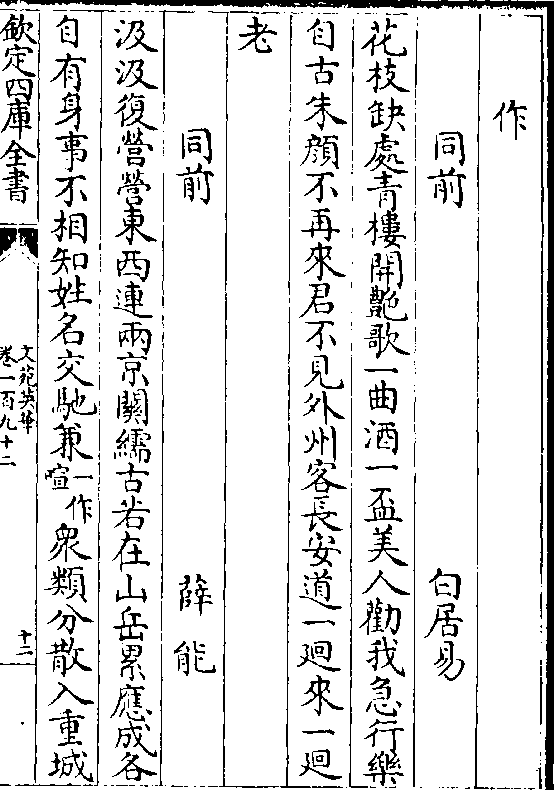 作
同前 白居易
花枝缺處青樓開艷歌一曲酒一盃美人勸我急行樂
自古朱顏不再來君不見外州客長安道一廻來一廻
老
同前 薛能
汲汲復營營東西連兩京關繻古若在山岳累應成各
自有身事不相知姓名交馳兼一作喧衆類分散入重城
欽定四庫全書
文苑英華
卷一百九十二
十二